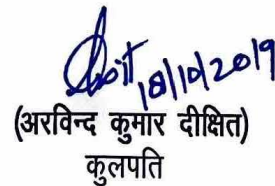 18/10/2019
(अरविन्द कुमार दीक्षित)
कुलपति